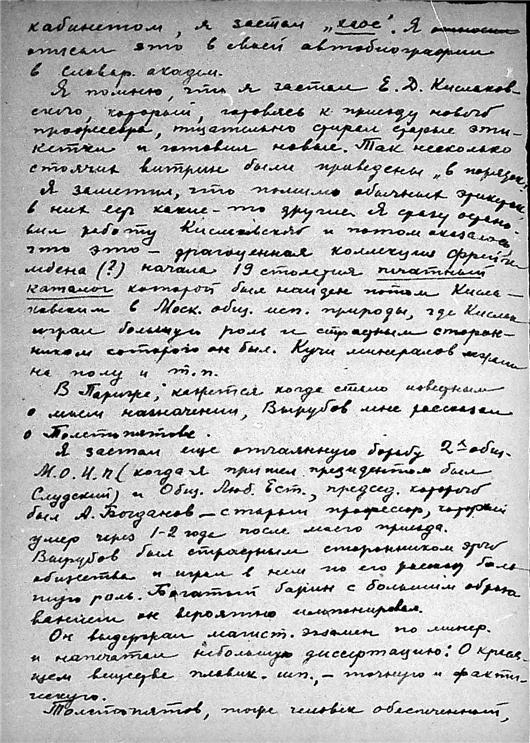 кабинетом, я застал „хаос". Я
описал это в своей автобиографии
в словар. академ.
Я помню, что я застал Е. Д. Кислаков-
ского, который, готовясь к приезду нового
профессора, тщательно стирал старые эти-
кетки и готовил новые. Так несколько
стоячих витрин были приведены „в порядок.
Я заметил, что помимо обычных этикеток
в них есть какие-то другие. Я сразу остано-
вил работу Кислаковского и потом оказалось
что это — драгоценная коллекция Фрейес-
лебена (?) начала 19 столетия печатный
каталог которой был найден потом Кисла-
ковским в Моск. общ. исп. природы, где Кислак
играл большую роль и страстным сторон-
ником которого он был. Кучи минералов
на полу и т.п.
В Париже, кажется когда стало известным
о моем назначении, Вырубов мне рассказал
о Толстопятове.
Я застал еще отчаянную борьбу 2х общ.
М.О.И.П (когда я пришел президентом был
Слудский) и Общ. Люб. Ест., председ. которого
был А. Богданов — старый профессор, который
умер через 1-2 года после моего приезда.
Вырубов был страстным сторонником этого
общества и играл в нем по его рассказу боль-
шую роль. Богатый барин с большим образо
ванием он вероятно импонировал.
Он выдержал магист. экзамен по минер.
и напечатал небольшую диссертацию: О крася-
щем веществе плавик. шп., — точную и факти-
ческую.
Толстопятов, тоже человек обеспеченный,